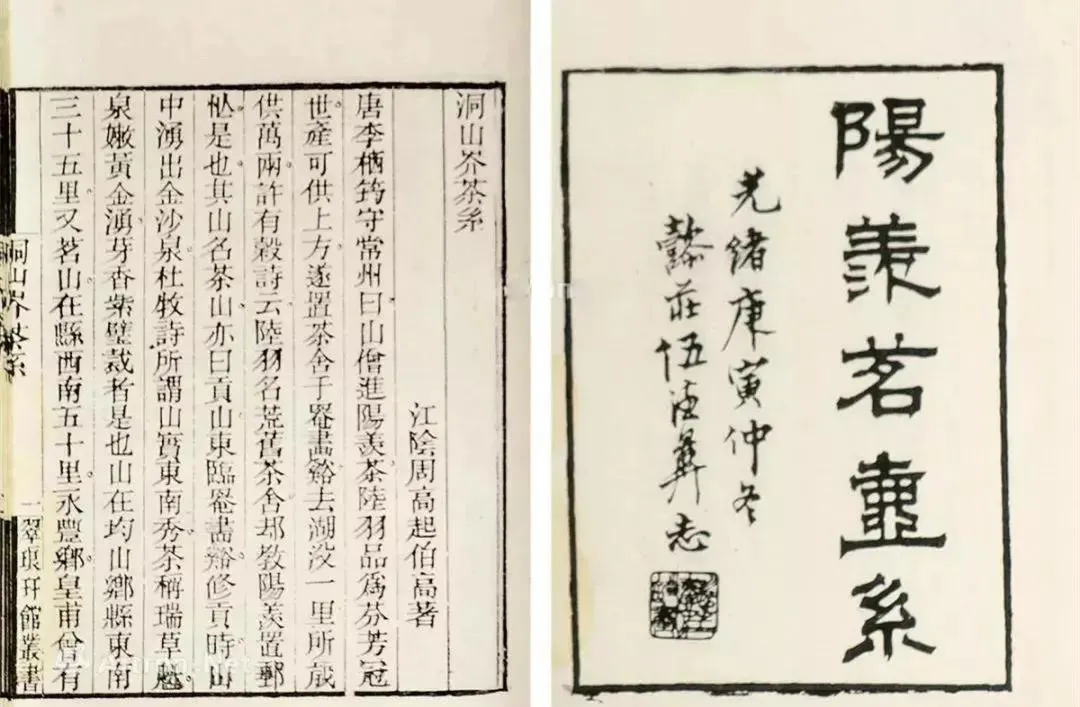 陽羨茗壺系
光緒庚寅仲冬
懿莊伍德彝志
洞山岕茶系
江陰周高起伯高著
唐李栖筠守常州曰山僧進陽羨茶陸羽品爲芬芳冠
世產可供上方遂置茶舍于罨畫谿去湖㳇一里所歲
供萬兩許有穀詩云陸羽名荒舊茶舍却教陽羨置郵
忙是也其山名茶山亦曰貢山東臨罨畫谿修貢時山
中湧出金沙泉杜牧詩所謂山實東南秀茶稱瑞草魁
泉嫩黃金湧芽香紫璧裁者是也山在均山鄉縣東南
三十五里又茗山在縣西南五十里永豐鄉皇甫曾有
洞山岕茶系
一
翠琅玕館叢書